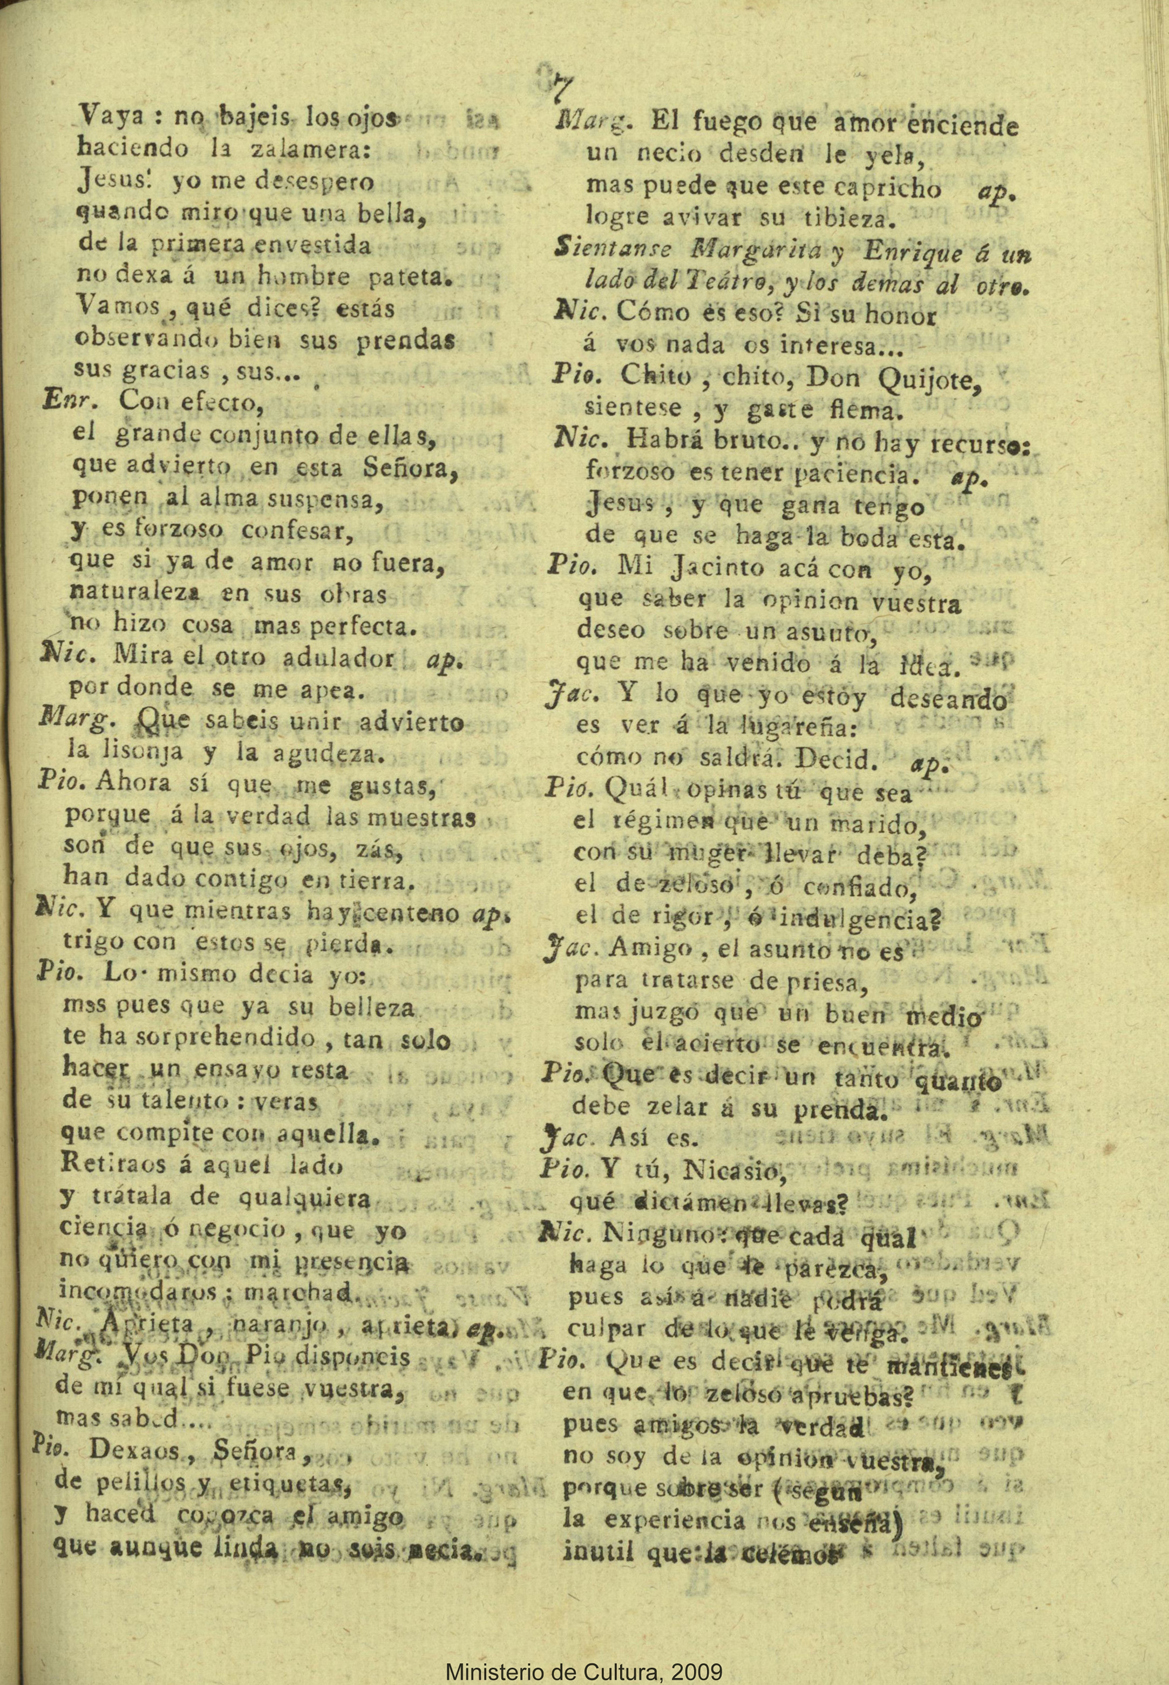 7
Vaya : no bajeis los ojos
haciendo la zalamera:
Jesus! yo me desespero
quando miro que una bella,
de la primera envestida
no dexa á un hombre pateta.
Vamos , qué dices? estás
observando bien sus prendas
sus gracias , sus...
Enr. Con efecto,
el grande conjunto de ellas,
que advierto en esta Señora,
ponen al alma suspensa,
y es forzoso confesar,
que si ya de amor no fuera,
naturaleza en sus obras
no hizo cosa mas perfecta.
Nic. Mira el otro adulador ap.
por donde se me apea.
Marg. Que sabeis unir advierto
la lisonja y la agudeza.
Pio. Ahora sí que me gustas,
porque á la verdad las muestras
son de que sus ojos, zás,
han dado contigo en tierra.
Nic. Y que mientras hay centeno ap.
trigo con estos se pierda.
Pio. Lo mismo decia yo:
mss pues que ya su belleza
te ha sorprehendido , tan solo
hacer un ensayo resta
de su talento : veras
que compite con aquella.
Retiraos á aquel lado
y trátala de qualquiera
ciencia ó negocio , que yo
no quiero con mi presencia
incomodaros : marchad.
Nic. Aprieta , naranjo , aprieta. ap.
Marg. Vos Don Pio disponeis
de mi qual si fuese vuestra,
mas sabed....
Pio. Dexaos , Señora ,
de pelillos y etiquetas,
y haced conozca el amigo
que aunque linda no sois necia.
Marg. El fuego que amor enciende
un necio desden le yela,
mas puede que este capricho ap.
logre avivar su tibieza.
Sientanse Margarita y Enrique á un
lado del Teátro, y los demas al otro.
Nic. Cómo es eso? Si su honor
á vos nada os interesa...
Pio. Chito , chito, Don Quijote,
sientese , y gaste flema.
Nic. Habrá bruto.. y no hay recurso:
forzoso es tener paciencia. ap.
Jesus , y que gana tengo
de que se haga la boda esta.
Pio. Mi Jacinto acá con yo,
que saber la opinion vuestra
deseo sobre un asunto,
que me ha venido á la idea.
Jac. Y lo que yo estoy deseando
es ver á la lugareña:
cómo no saldrá. Decid. ap.
Pio. Quál opinas tú que sea
el régimen que un marido,
con su muger llevar deba?
el de zeloso , ó confiado,
el de rigor , ó indulgencia?
Jac. Amigo , el asunto no es
para tratarse de priesa,
mas juzgo que un buen medio
solo el acierto se encuentra.
Pio. Que es decir un tanto quanto
debe zelar á su prenda.
Jac. Así es.
Pio. Y tú, Nicasio,
qué dictámen llevas?
Nic. Ninguno: que cada qual
haga lo que le parezca,
pues así á nadie podrá
culpar de lo que le venga.
Pio. Que es decir que te mantienes
en que lo zeloso apruebas?
pues amigos la verdad
no soy de la opinion vuestra,
porque sobre ser ( segun
la experiencia nos enseña)
inutil que la celémos
Ministerio de Cultura, 2009